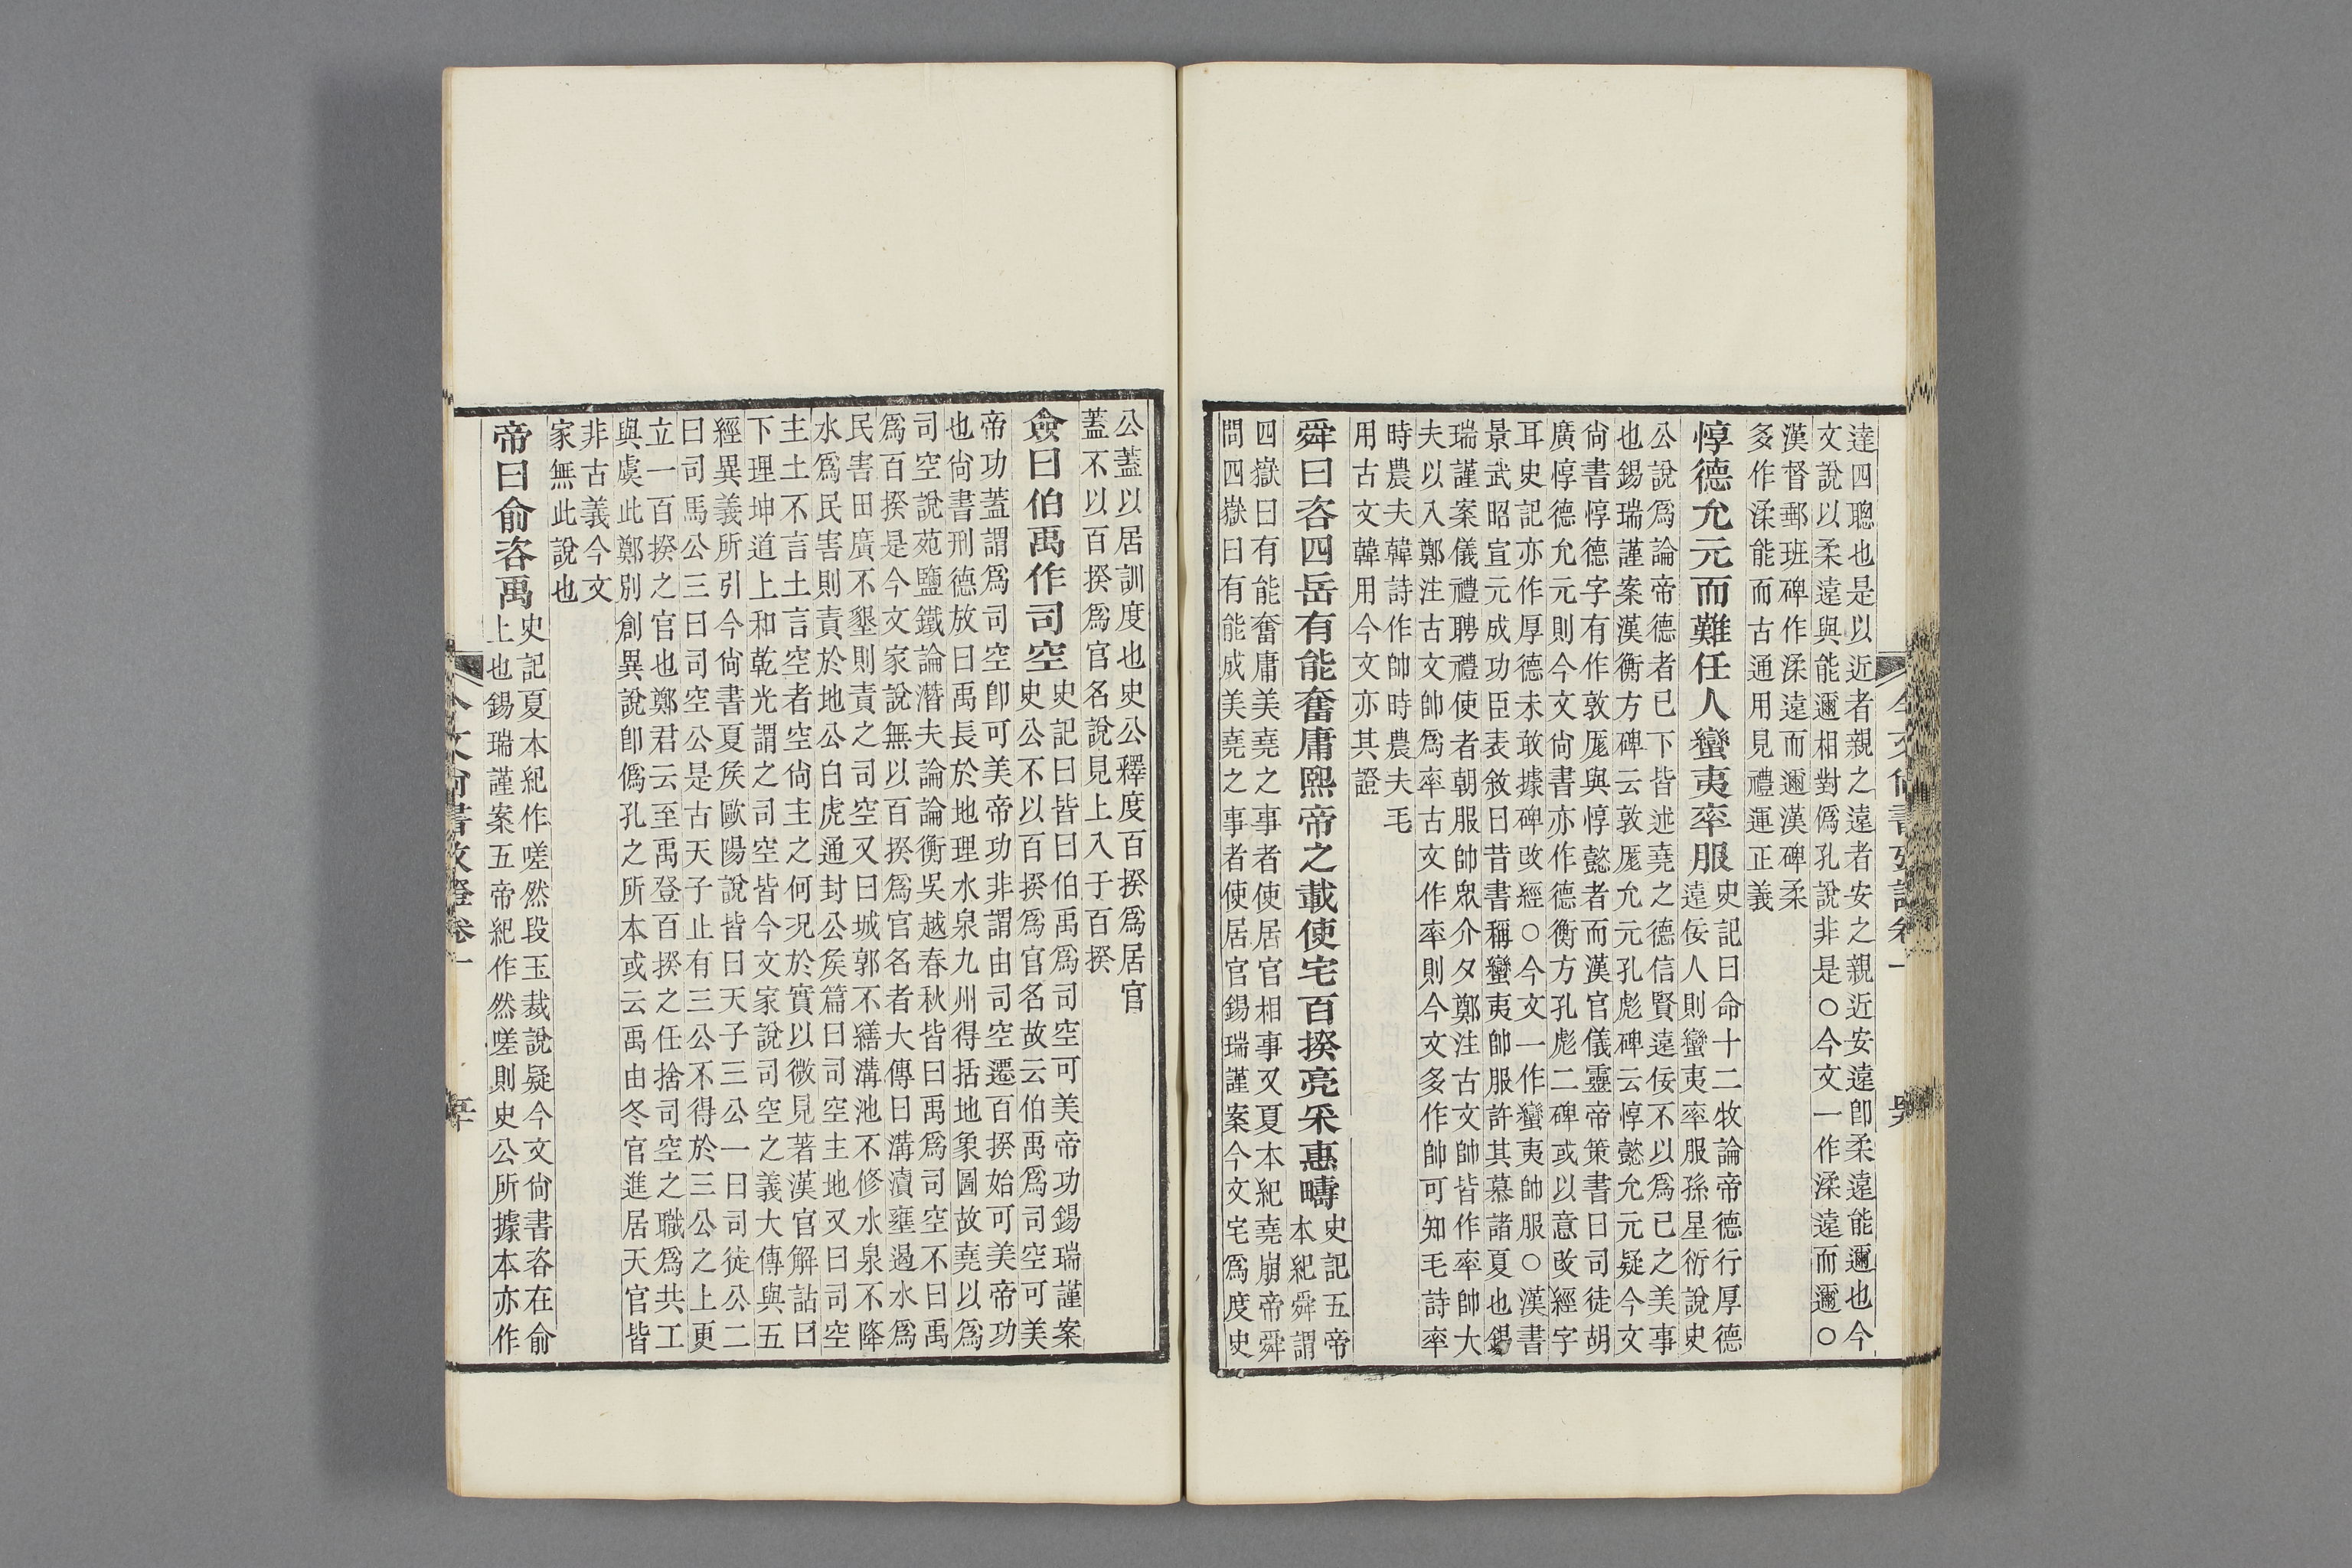 達四聰也是以近者親之遠者安之親近安遠卽柔遠能邇也今
文說以柔遠與能邇相對僞孔說非是○今文一作渘遠而邇○
漢督郵班碑作渘遠而邇漢碑柔
多作渘能而古通用見禮運正義
惇德允元而難任人蠻夷率服
史記曰命十二牧論帝德行厚德
遠佞人則蠻夷率服孫星衍說史
公說爲論帝德者已下皆述堯之德信賢遠佞不以爲己之美事
也錫瑞謹案漢衡方碑云敦厖允元孔彪碑云惇懿允元疑今文
尙書惇德字有作敦厖與惇懿者而漢官儀靈帝策書曰司徒胡
廣惇德允元則今文尙書亦作德衡方孔彪二碑或以意改經字
耳史記亦作厚德未敢據碑改經○今文一作蠻夷帥服○漢書
景武昭宣元成功臣表敘曰昔書稱蠻夷帥服許其慕諸夏也錫
瑞謹案儀禮聘禮使者朝服帥眾介夕鄭注古文帥皆作率帥大
夫以入鄭注古文帥爲率古文作率則今文多作帥可知毛詩率
時農夫韓詩作帥時農夫毛
用古文韓用今文亦其證
舜曰咨四岳有能奮庸熙帝之載使宅百揆亮采惠疇
史記五帝
本紀舜謂
四嶽曰有能奮庸美堯之事者使居官相事又夏本紀堯崩帝舜
問四嶽曰有能成美堯之事者使居官錫瑞謹案今文宅爲度史
今文尙書攷證卷一
公蓋以居訓度也史公釋度百揆爲居官
蓋不以百揆爲官名說見上入于百揆
僉曰伯禹作司空
史記曰皆曰伯禹爲司空可美帝功錫瑞謹案
史公不以百揆爲官名故云伯禹爲司空可美
帝功蓋謂爲司空卽可美帝功非謂由司空遷百揆始可美帝功
也尙書刑德放曰禹長於地理水泉九州得括地象圖故堯以爲
司空說苑鹽鐵論潛夫論論衡吳越春秋皆曰禹爲司空不曰禹
爲百揆是今文家說無以百揆爲官名者大傳曰溝瀆壅遏水爲
民害田廣不墾則責之司空又曰城郭不繕溝池不修水泉不降
水爲民害則責於地公白虎通封公矦篇曰司空主地又曰司空
主土不言土言空者空尙主之何況於實以微見著漢官解詁曰
下理坤道上和乾光謂之司空皆今文家說司空之義大傳與五
經異義所引今尙書夏矦歐陽說皆曰天子三公一曰司徒公二
曰司馬公三曰司空公是古天子止有三公不得於三公之上更
立一百揆之官也鄭君云至禹登百揆之任捨司空之職爲共工
與虞此鄭別創異說卽僞孔之所本或云禹由冬官進居天官皆
非古義今文
家無此說也
帝曰俞咨禹
史記夏本紀作嗟然段玉裁說疑今文尙書咨在俞
上也錫瑞謹案五帝紀作然嗟則史公所據本亦作
今文尙書攷證卷一